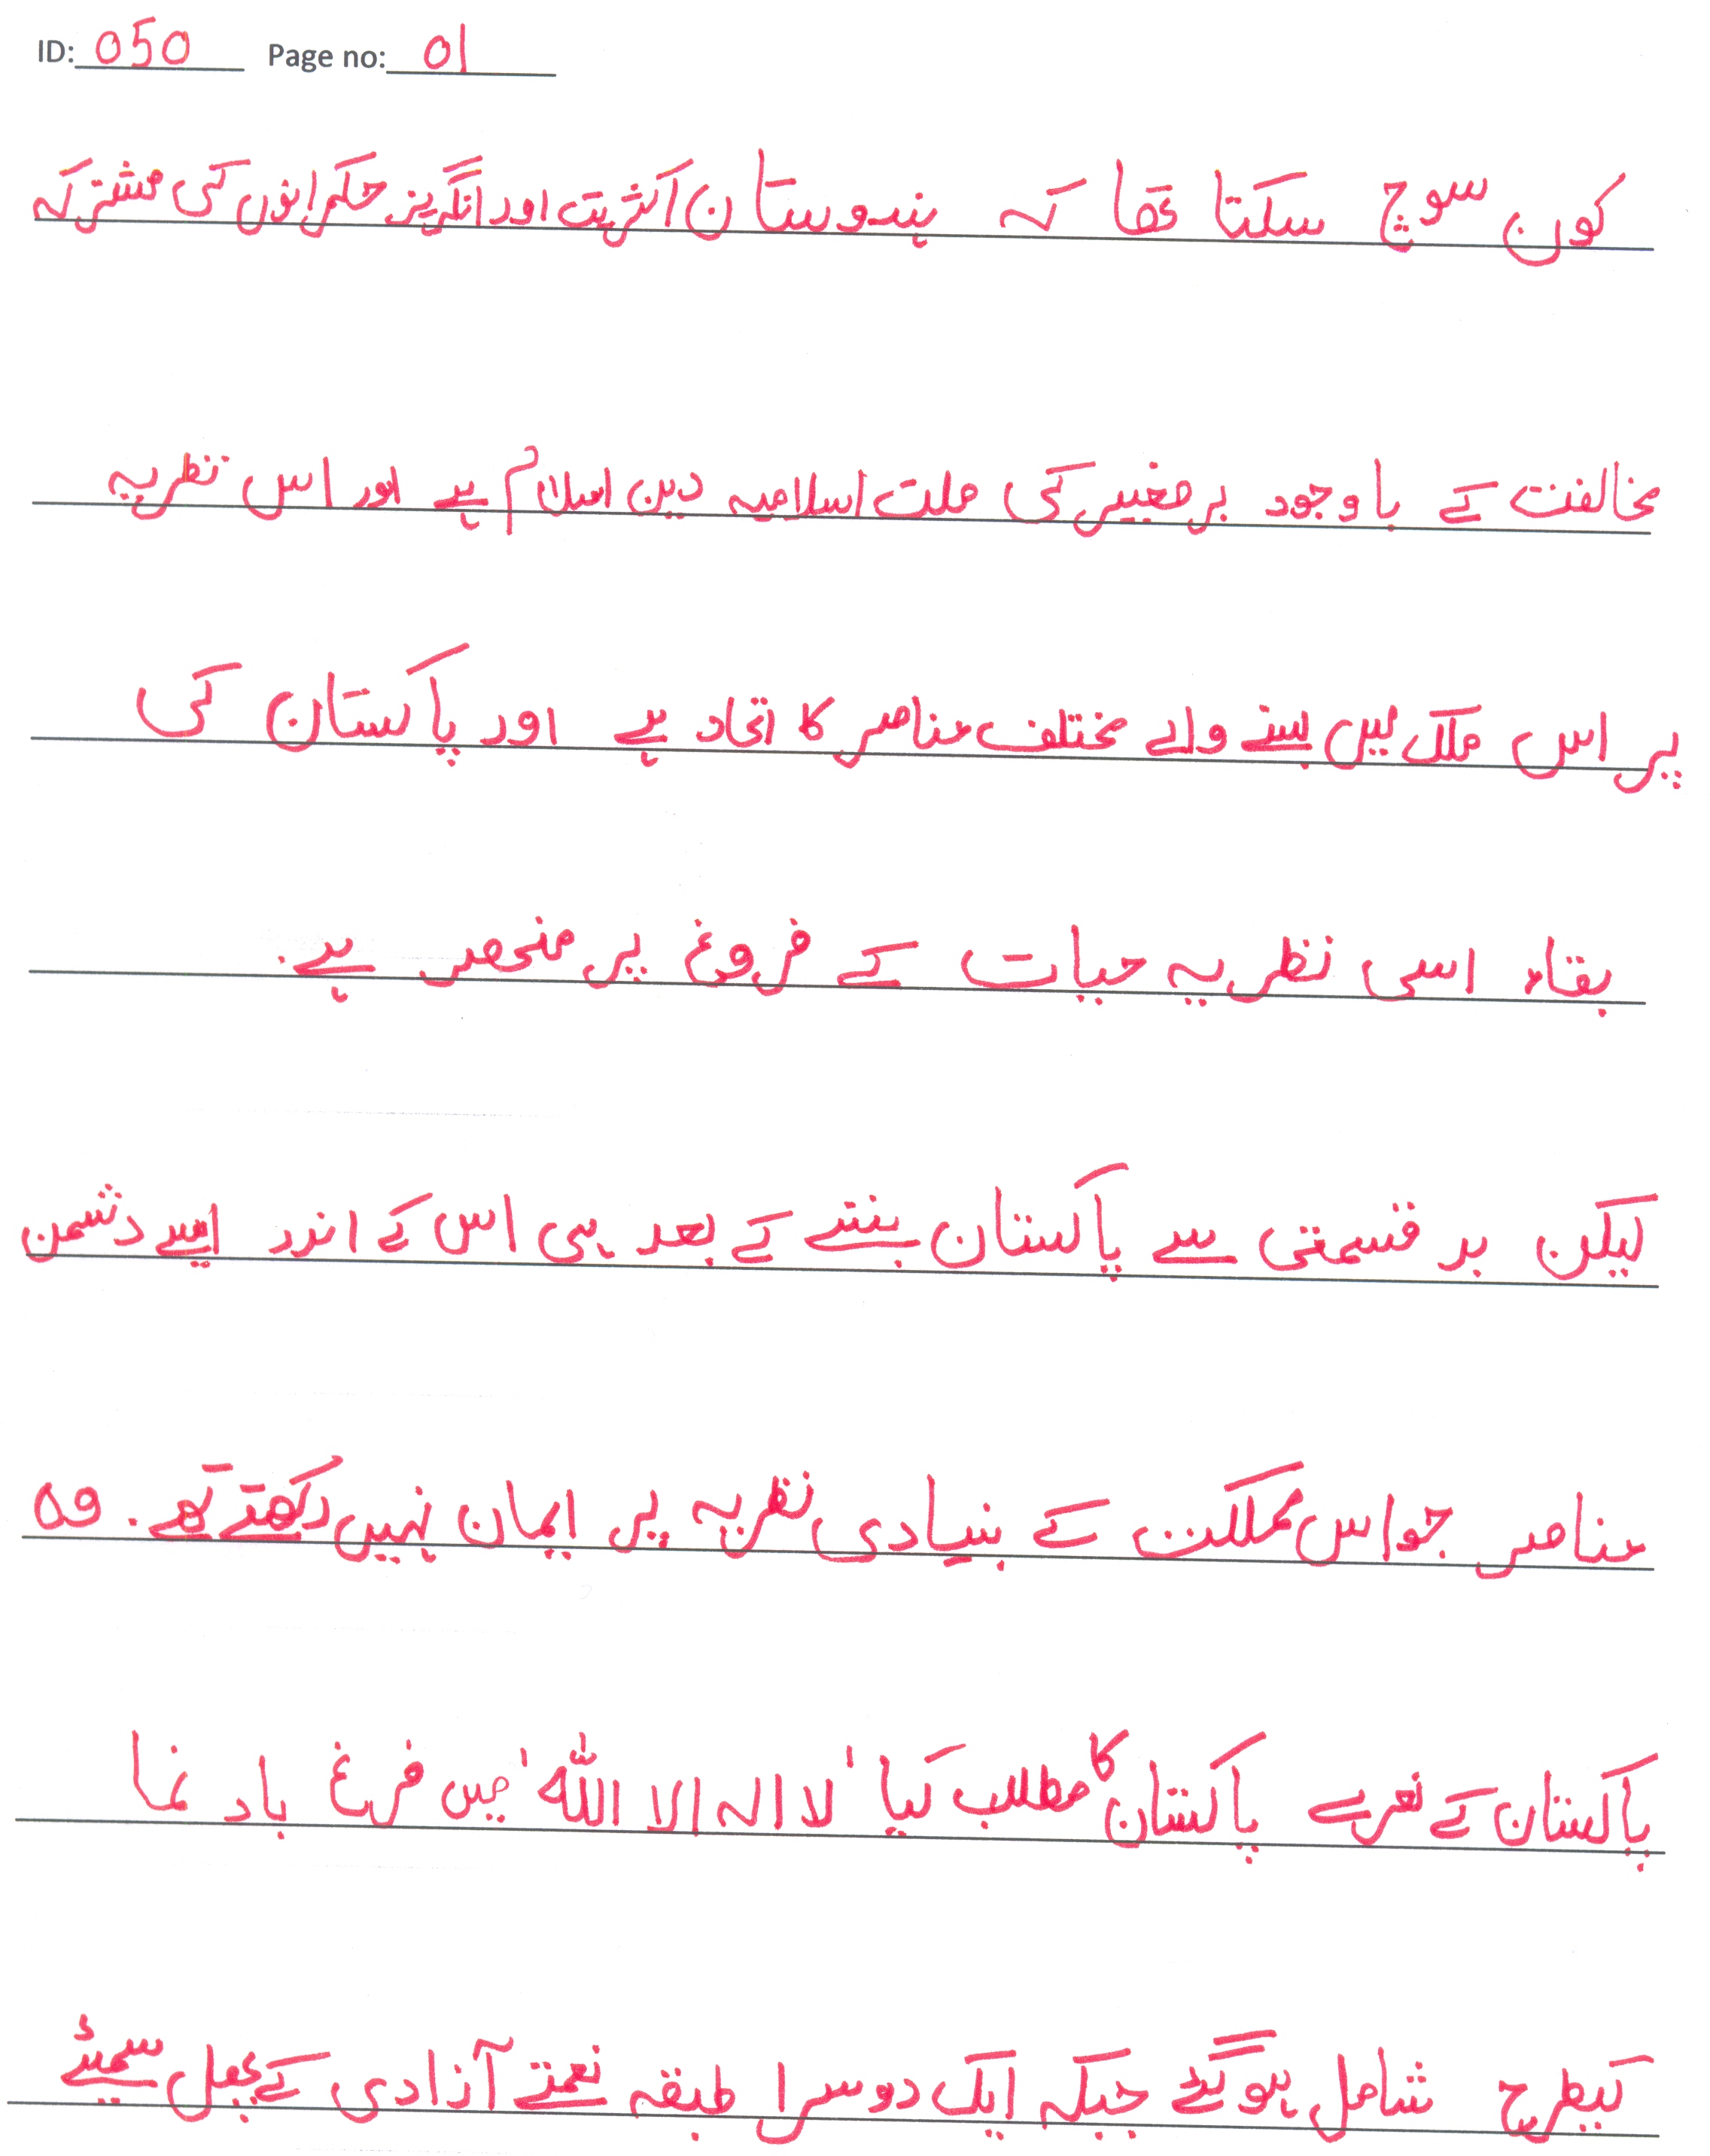 ID: 050 Page no: 01
کون سوچ سکتا تھا کہ ہندوستان اکثریت اور انگریز حکمرانوں کی مشترکہ
مخالفت کے باوجود برصغیر کی ملت اسلامیہ دین اسلام ہے اور اس نظریہ
پر اس ملک میں بسنے والے مختلف عناصر کا اتحاد ہے اور پاکستان کی
بقاء اسی نظریہ حیات کے فروغ پر منحصر ہے.
لیکن بد قسمتی سے پاکستان بنتے کے بعد ہی اس کے اندر ایسے دشمن
عناصر جو اس مملکت کے بنیادی نظریہ پر ایمان نہیں رکھتے تھے. وہ
پاکستان کے نعرے پاکستان کا مطلب کیا 'لا الہ الا اللّٰہ' میں فرغ باد نما
کیطرح شامل ہوگئے جبکہ ایک دوسرا طبقہ نعمتے آزادی کے پھل سمیٹے